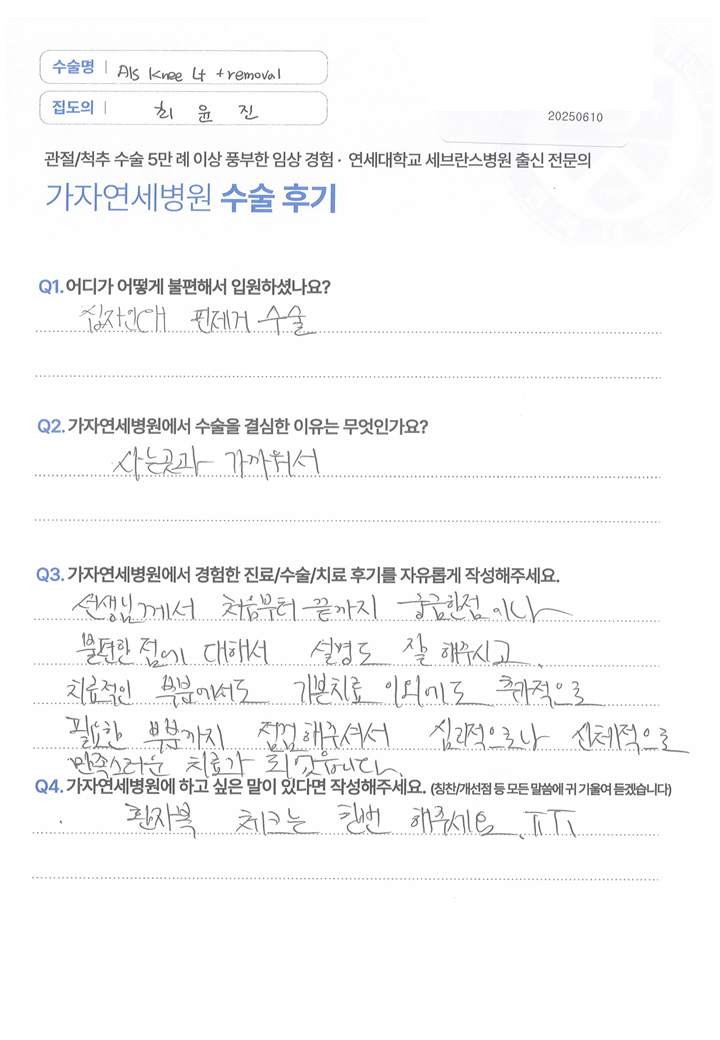 수술명 | A/s Knee Lt + removal
집도의 | 최 윤 진
20250610
관절/척추 수술 5만 례 이상 풍부한 임상 경험 · 연세대학교 세브란스병원 출신 전문의
가자연세병원 수술 후기
Q1. 어디가 어떻게 불편해서 입원하셨나요?
십자인대 핀제거 수술
Q2. 가자연세병원에서 수술을 결심한 이유는 무엇인가요?
사는곳과 가까워서
Q3. 가자연세병원에서 경험한 진료/수술/치료 후기를 자유롭게 작성해주세요.
선생님께서 처음부터 끝까지 궁금한점이나
불편한 점에 대해서 설명도 잘 해주시고,
치료적인 부분에서도 기본치료 이외에도 추가적으로
필요한 부분까지 점검해주셔서 심리적으로나 신체적으로
만족스러운 치료가 되었습니다.
Q4. 가자연세병원에 하고 싶은 말이 있다면 작성해주세요. (칭찬/개선점 등 모든 말씀에 귀 기울여 듣겠습니다)
환자복 체크는 한번 해주세요. ㅠㅠ